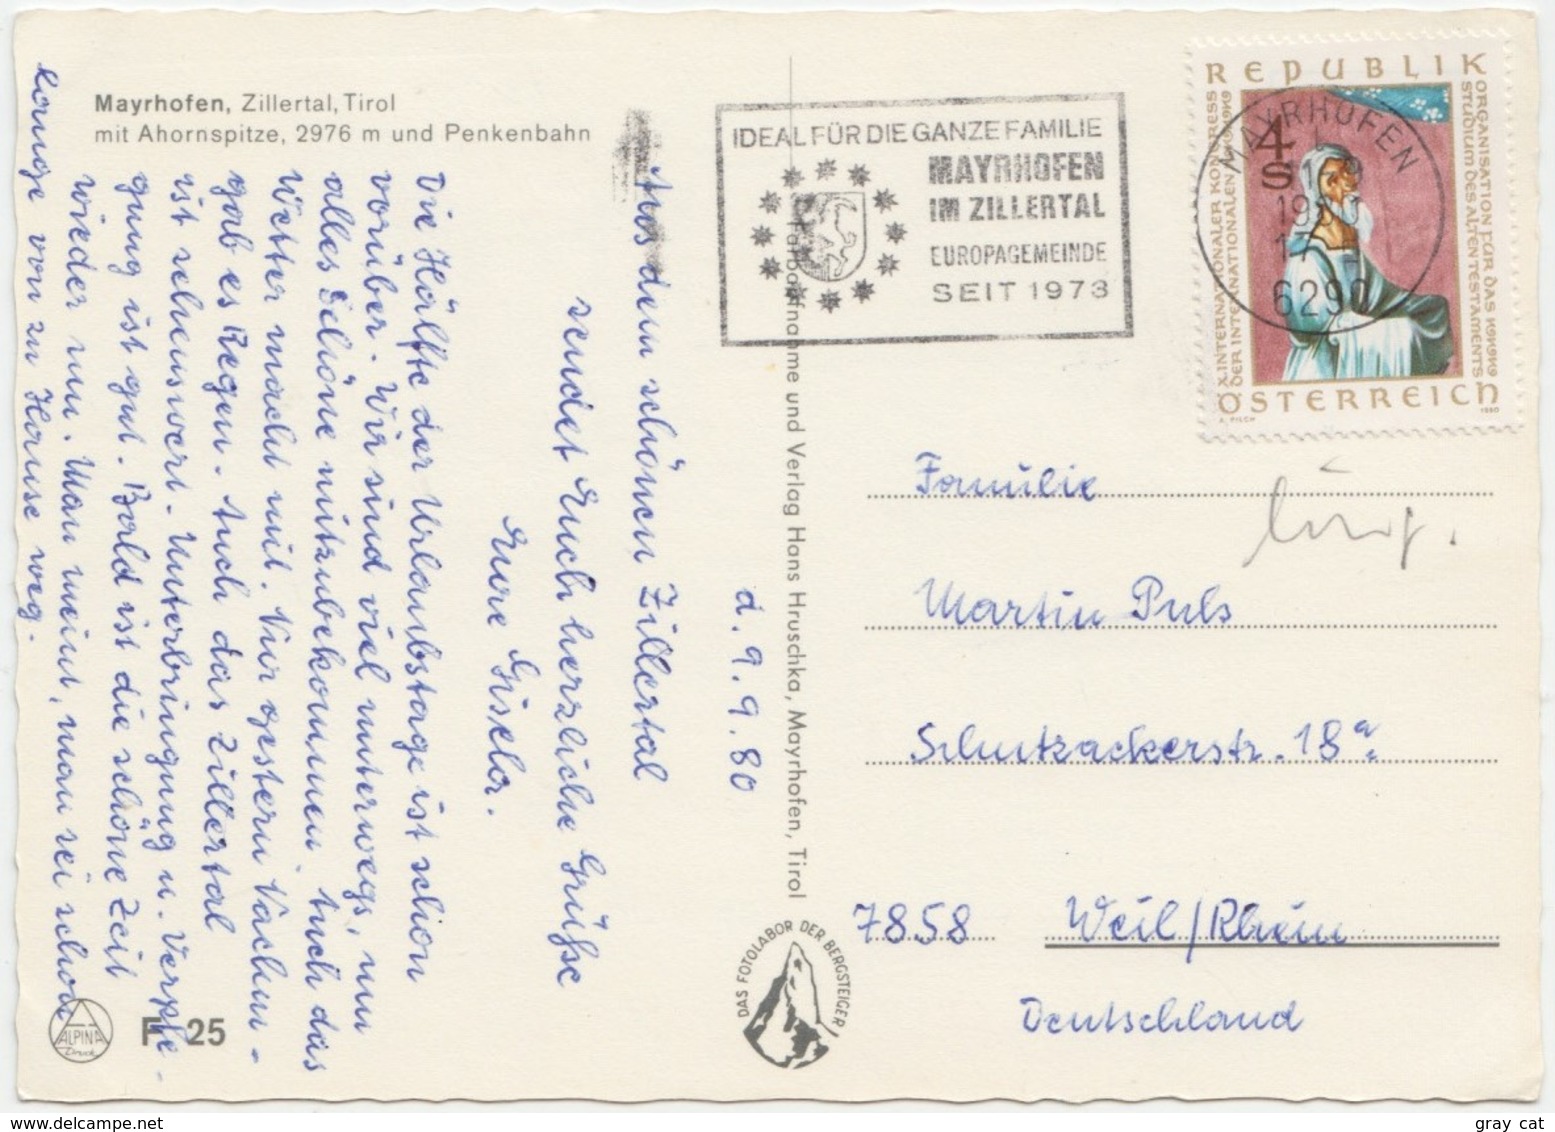 Mayrhofen, Zillertal, Tirol
mit Ahornspitze, 2976 m und Penkenbahn
d. 9. 9. 80
Aus dem schönen Zillertal
sendet Euch herzliche Grüße
Eure Gisela.
Die Hälfte der Urlaubstage ist schon
vorüber. Wir sind viel unterwegs, um
alles Schöne mitzubekommen. Auch das
Wetter macht mit. Nur gestern Nachm.
gab es Regen. Auch das Zillertal
ist sehenswert. Unterbringung u. Verpfle-
gung ist gut. Bald ist die schöne Zeit
wieder um. Man meint, man sei schon
lange von zu Hause weg.
ALPINA
Druck
F 25
Farbaufnahme und Verlag Hans Hruschka, Mayrhofen, Tirol
DAS FOTOLABOR DER BERGSTEIGER
IDEAL FÜR DIE GANZE FAMILIE
MAYRHOFEN
IM ZILLERTAL
EUROPAGEMEINDE
SEIT 1973
REPUBLIK
4
S
X. INTERNATIONALER KONGRESS
DER INTERNATIONALEN
ORGANISATION FÜR DAS
STUDIUM DES ALTEN TESTAMENTS
ÖSTERREICH
A. PILCH
1980
MAYRHOFEN
6290
Familie
Martin Puls
Schutzackerstr. 18a
7858 Weil/Rhein
Deutschland
gray cat